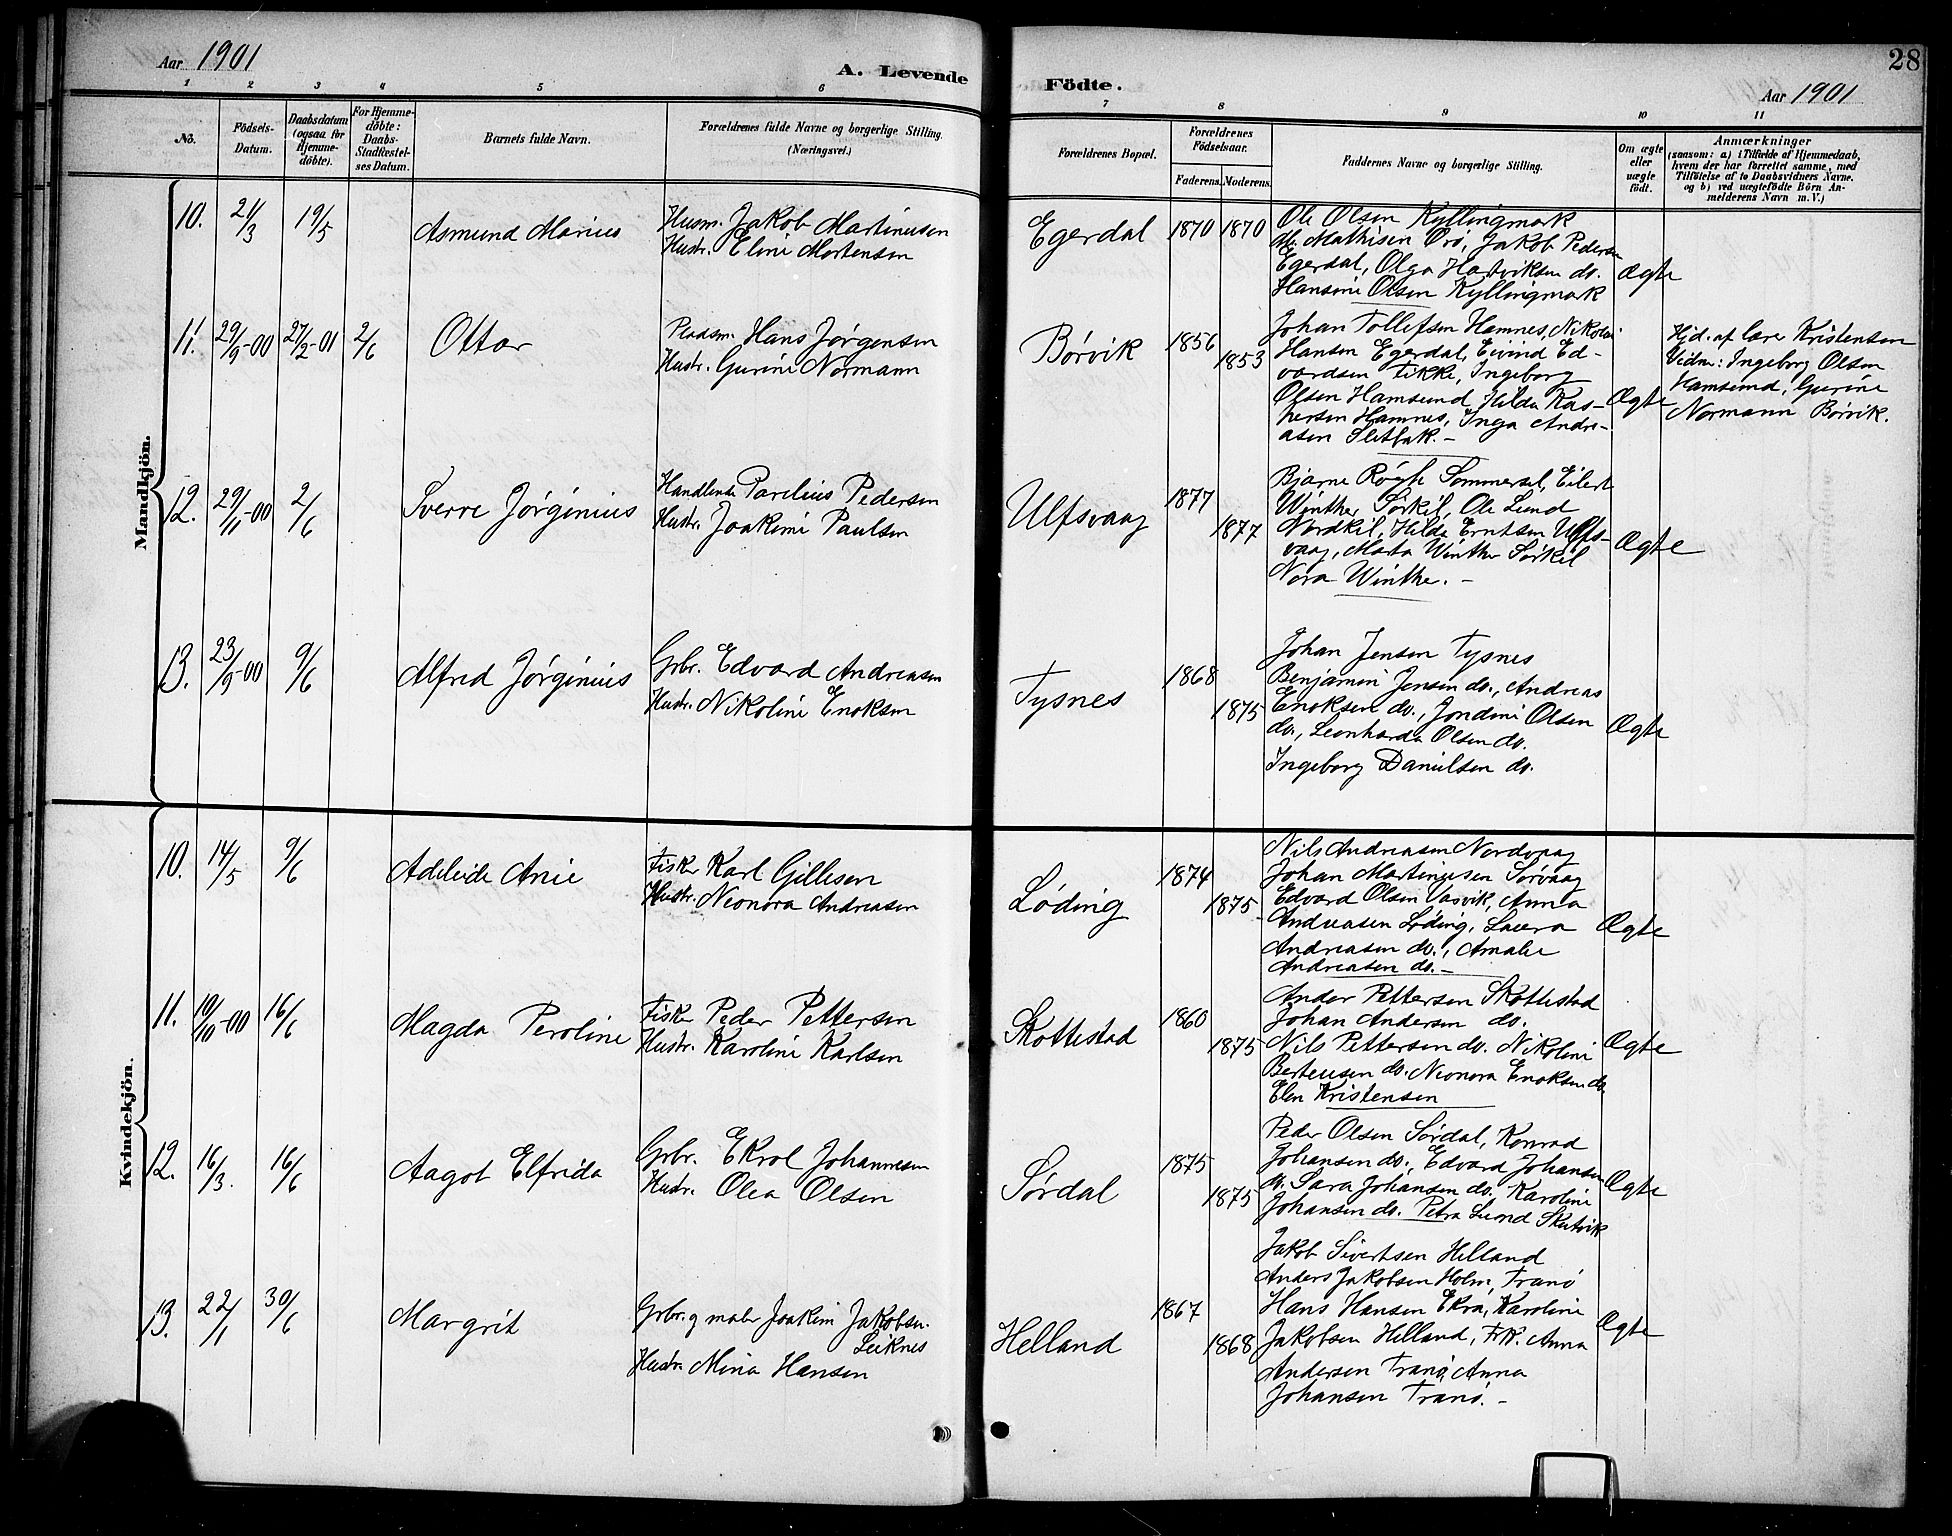 Aar 1901
A. Levende
Födte.
Aar 1901
28
1 2 3 4 5 6 7 8 9 10 11
No.
Födsels-
Datum.
Daabsdatum
(ogsaa for
Hjemme-
döbte).
For Hjemme-
döbte:
Daabs-
Stadfæstel-
ses Datum.
Barnets fulde Navn.
Forældrenes fulde Navne og borgerlige Stilling.
(Næringsvei.)
Forældrenes Bopæl.
Forældrenes
Födselsaar.
Faderens. Moderens.
Faddernes Navne og borgerlige Stilling.
Om ægte
eller
uægte
födt.
Anmærkninger
(saasom: a) i Tilfælde af Hjemmedaab,
hvem der har forrettet samme, med
Tilföielse af to Daabsvidners Navne.
og b) ved uægtefödte Börn An-
melderens Navn m. V.)
Mandkjön.
10. 21/3 19/5
Asmund Marius
Husm. Jakob Martinusen
Hustr. Eline Mortensen
Egerdal
1870 1870
Ole Olsen Kyllingmark
M. Mathisen Orö, Jakob Pedersen
Egerdal, Olga Hartviksen do.
Hansine Olsen Kyllingmark
Ægte
11. 29/9-00 27/2-01 2/6
Ottar
Pladsm. Hans Jørgensen
Hustr. Gurine Normann
Börvik
1856
1853
Johan Tollefsen Hamnes, Nikolai
Hansen Egerdal, Eivind Ed-
vardsen Fikke, Ingeborg
Olsen Hamsund, Hilda Kas-
persen Hamnes, Inga Andre-
asen Sletbak. -
Ægte
Hjd. af lærer Kristensen
Vidne: Ingeborg Olsen
Hamsund, Gurine
Normann Börvik.
12. 29/11-00 2/6
Sverre Jørginius
Handlende Parelius Pedersen
Hustr. Joakime Paulsen
Ulfsvaag
1877
1877
Bjarne Røgh Sommersel, Eilert
Winther Sörkil, Ole Lund
Nordkil, Hilda Erntsen Ulfs-
vaag, Marta Winther Sörkil
Nora Winther. -
Ægte
13. 23/9-00 9/6
Alfred Jørginius
Grbr. Edvard Andreasen
Hustr. Nikoline Enoksen
Tysnes
1868
1875
Johan Jensen Tysnes
Benjamin Jensen do., Andreas
Enoksen do., Jondine Olsen
do., Leonharda Olsen do.
Ingeborg Danielsen do.
Ægte
Kvindekjön.
10. 14/5 9/6
Adeleide Anie
Fisker Karl Gillesen
Hustr. Neonora Andreasen
Løding
1874
1875
Nils Andreasen Nordvaag
Johan Martinusen Sörvaag
Edvard Olsen Vasvik, Anna
Andreasen Löding, Laura
Andreasen do., Amalie
Andreasen do. -
Ægte
11. 10/10-00 16/6
Magda Peroline
Fisker Peder Pettersen
Hustr. Karoline Karlsen
Skottestad
1860
1875
Ander Pettersen Skottestad
Johan Andersen do.
Nils Pettersen do. Nikoline
Berteusen do. Neonora Enoksen do.
Elen Kristensen
Ægte
12. 16/3. 16/6
Aagot Elfrida
Grbr. Ekrol Johannesen
Hustr. Olea Olsen
Sørdal
1875
1875
Peder Olsen Sørdal, Konrad
Johansen do., Edvard Johansen
do. Sara Johansen do. Karoline
Johansen do. Petra Lund Skutvik
Ægte
13. 22/1 30/6
Margrit
Grbr. og maler Joakim Jakobsen.
Leiknes
Hustr. Mina Hansen
Helland
1867
1868
Jakob Sivertsen Helland
Anders Jakobsen Holm, Tranö
Hans Hansen Ekra, Karoline
Jakobsen Helland, Frk. Anna
Andersen Tranö, Anna
Johansen Tranö. -
Ægte